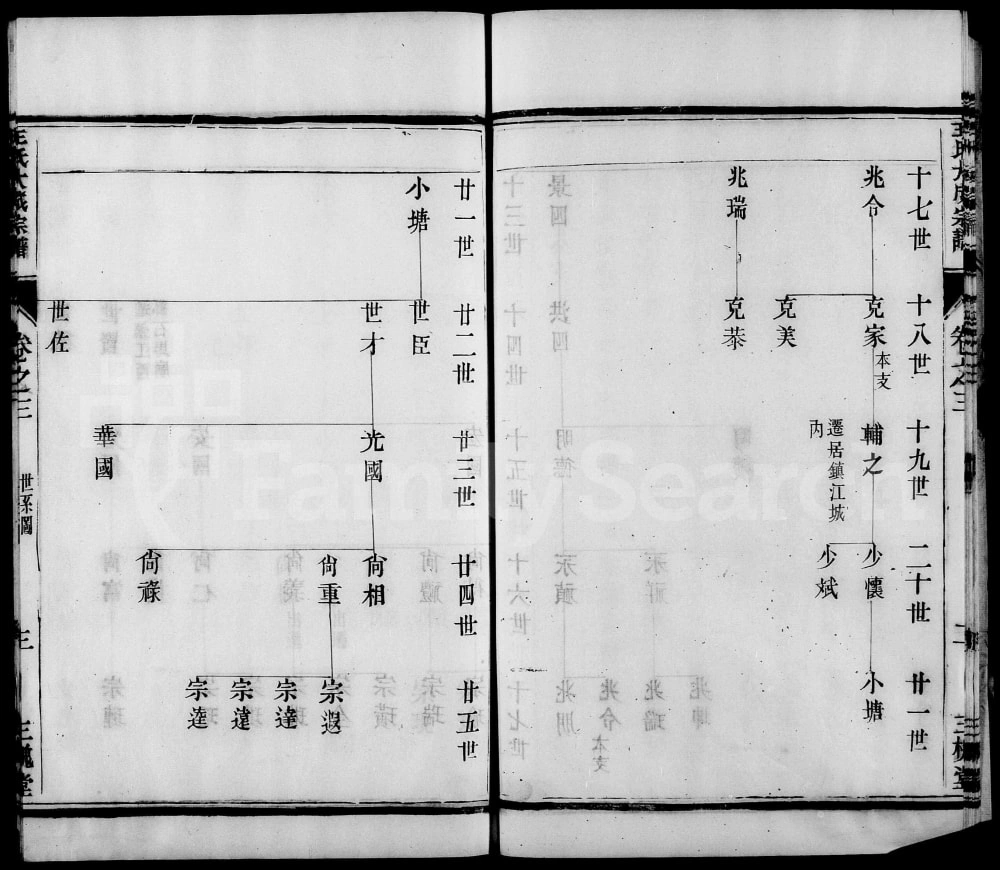 十七世
十八世
十九世
二十世
廿一世
兆令
克家
本支
輔之
遷居鎮江城
内
少懷
少斌
小塘
克美
兆瑞
克恭
卷之三
二
三槐堂
廿一世
廿二世
廿三世
廿四世
廿五世
小塘
世臣
世才
光國
尙相
尙重
宗遐
宗達
宗遠
華國
尙祿
世佐
王氏大成宗譜
卷之三
世系圖
三
三槐堂
FamilySearch